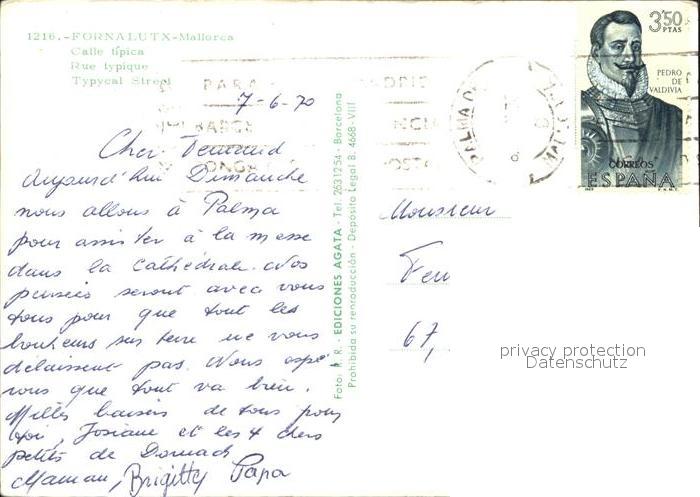 1216.-FORNALUTX-Mallorca
Calle típica
Rue typique
Typycal Street
7-6-70
Cher Fernand
Aujourd'hui Dimanche
nous allons à Palma
pour assister à la messe
dans la Cathédrale. Nos
pensées seront avec vous
tous pour que tout les
bonheurs sur terre ne vous
délaissent pas. Nous espé
rons que tout va bien.
Milles baisers de tous pour
toi, Josiane et les 4 chers
petits de Dornach
Maman, Brigitty Papa
Foto: R. R. - EDICIONES AGATA - Tel. 2631254 - Barcelona
Prohibida su reproducción - Deposito Legal B. 4668-VIII
PALMA D
MALL
3'50
PTAS
PEDRO
DE
VALDIVIA
CORREOS
ESPAÑA
Monsieur
Feu
67,
privacy protection
Datenschutz